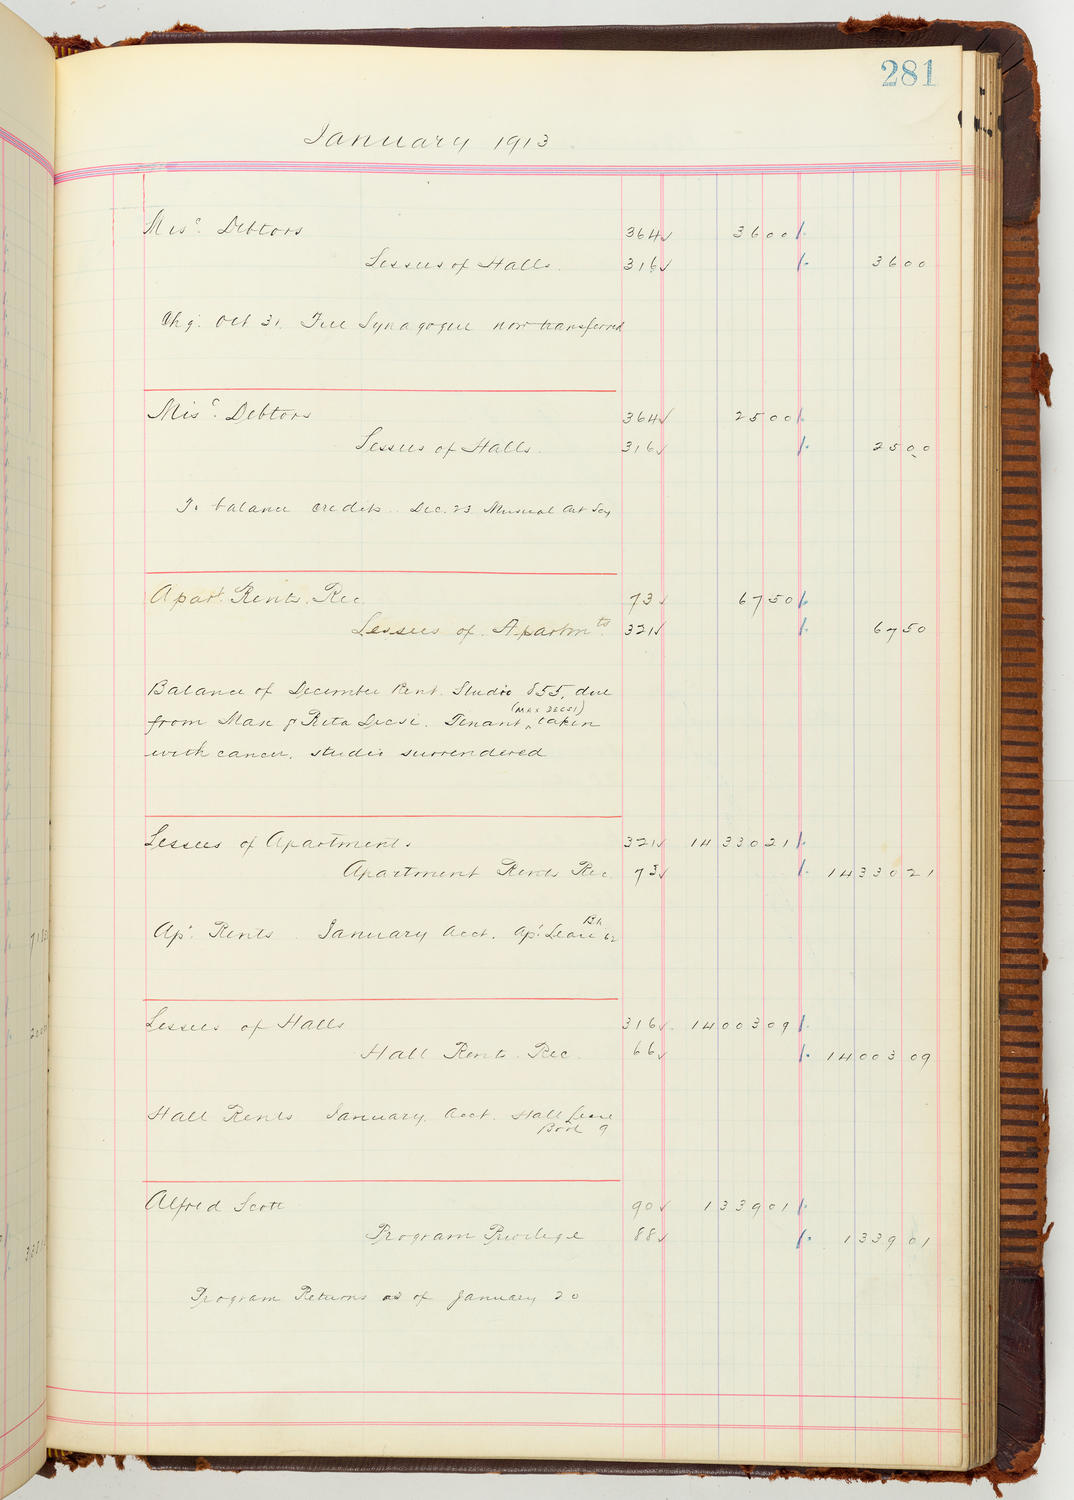 281
January 1913
Misc. Debtors 364✓ 3600
Lessees of Halls 316✓ 3600
Chg. Oct 31. Free Synagogue now transferred
Misc. Debtors 364✓ 2500
Lessees of Halls 316✓ 2500
To balance credits. Dec. 23 Musical Art Soy
Apart. Rents. Rec 73✓ 6750
Lessees of Apartmts 321✓ 6750
Balance of December Rent. Studio 855, due
from Max & Rita Decsi. Tenant ^(MAX DECSI) taken
with cancer, studio surrendered
Lessees of Apartments 321✓ 1433021
Apartment Rents Rec 73✓ 1433021
Apt. Rents January Acct. Apt. Lease Bk 12
Lessees of Halls 316✓ 1400309
Hall Rents Rec. 66✓ 1400309
Hall Rents January Acct. Hall Lease
Book 9
Alfred Scott 90✓ 133901
Program Privilege 88✓ 133901
Program Returns as of January 20